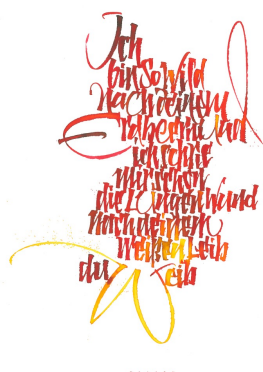 Ich
bin so wild
nach deinem
Erdbeermund
ich schrie
mir schon
die Lungen wund
nach deinem
weißen Leib
du Weib